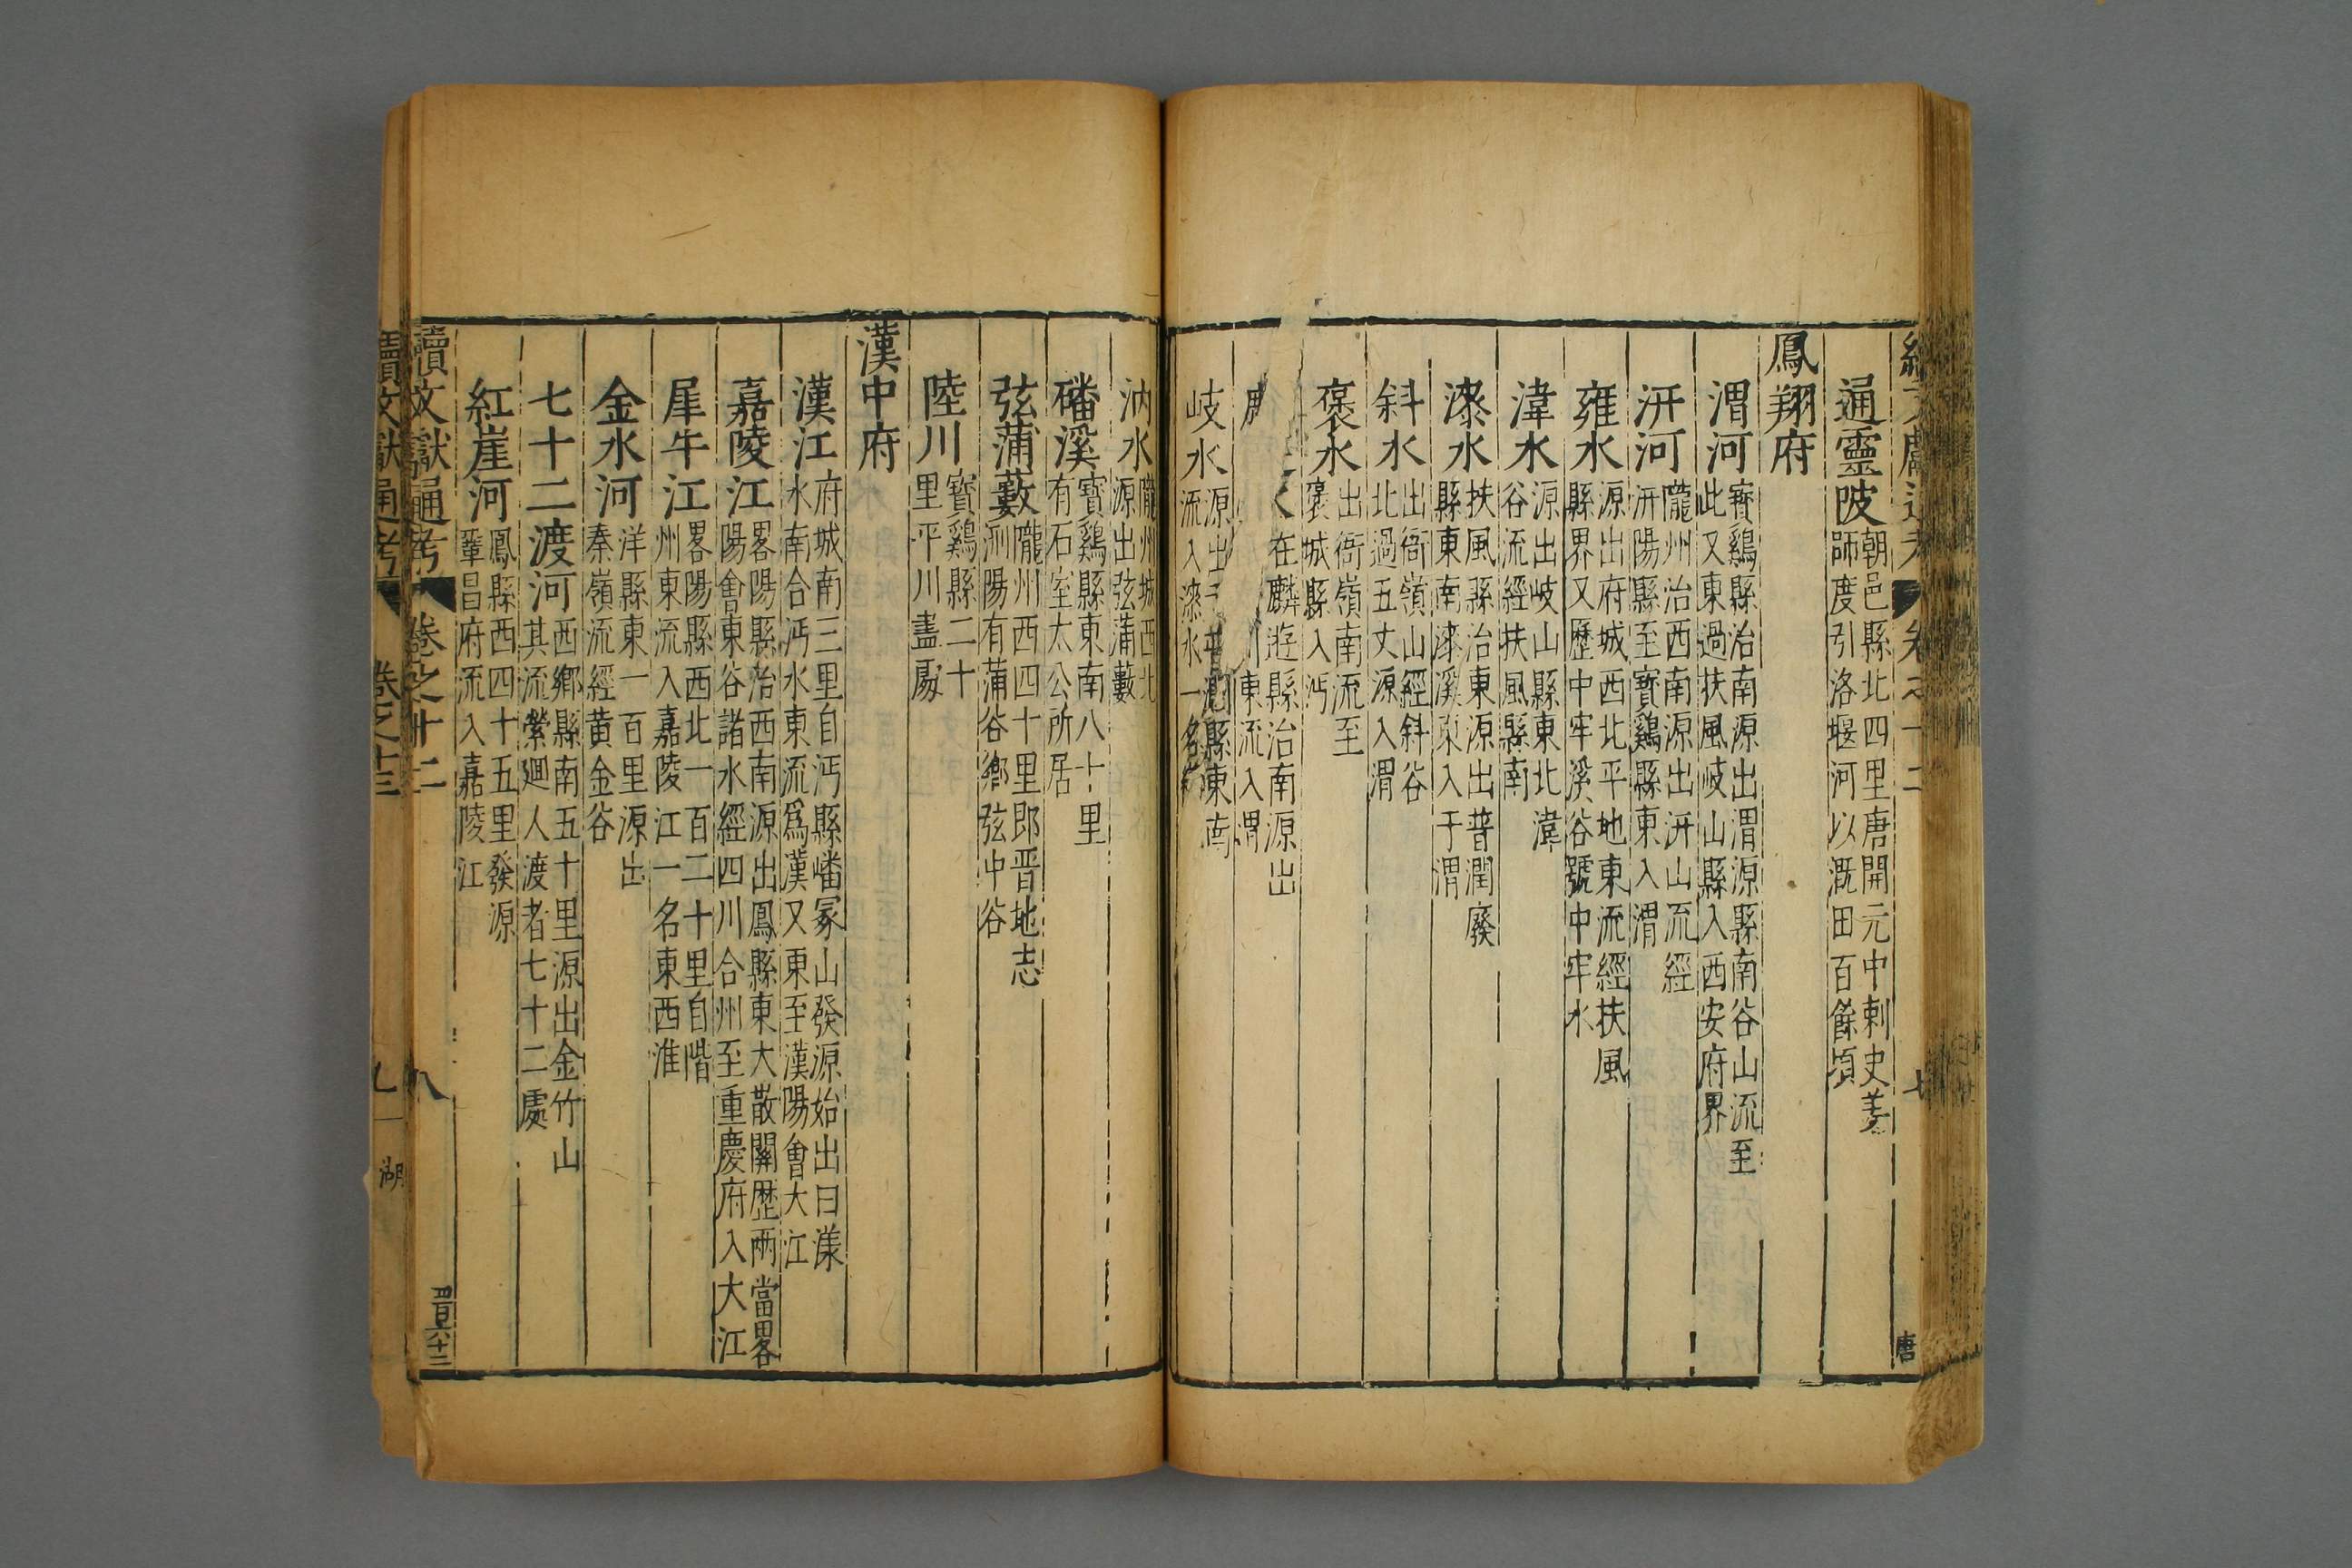 通靈陂朝邑縣北四里唐開元中刺史姜師度引洛堰河以溉田百餘頃
鳳翔府
渭河寶鷄縣治南源出渭源縣南谷山流至此又東過扶風岐山縣入西安府界
汧河隴州治西南源出汧山流經汧陽縣至寶鷄縣東入渭
雍水源出府城西北平地東流經扶風縣界又歷中牢溪谷號中牢水
湋水源出岐山縣東北湋谷流經扶風縣南
漆水扶風縣治東源出普潤廢縣東南漆溪東入于渭
斜水出衙嶺山經斜谷北過五丈源入渭
褒水出衙嶺南流至褒城縣入沔
在麟遊縣治南源出川東流入渭
岐水源出縣東南流入漆水一名
汭水隴州城西北源出弦蒲藪
磻溪寶鷄縣東南八十里有石室太公所居
弦蒲藪隴州西四十里郎晋地志汧陽有蒲谷鄉弦中谷
陸川寶鷄縣二十里平川盡處
漢中府
漢江府城南三里自沔縣嶓冢山發源始出曰漾水南合沔水東流爲漢又東至漢陽會大江
嘉陵江畧陽縣治西南源出鳳縣東大散關歷兩當畧陽會東谷諸水經四川合州至重慶府入大江
犀牛江畧陽縣西北一百二十里自階州東流入嘉陵江一名東西淮
金水河洋縣東一百里源出秦嶺流經黃金谷
七十二渡河西鄉縣南五十里源出金竹山其流縈廻人渡者七十二處
紅崖河鳳縣西四十五里發源鞏昌府流入嘉陵江
續文獻通考 卷之十二 八 四百六十三
續文獻通考 卷之十三 九 湖